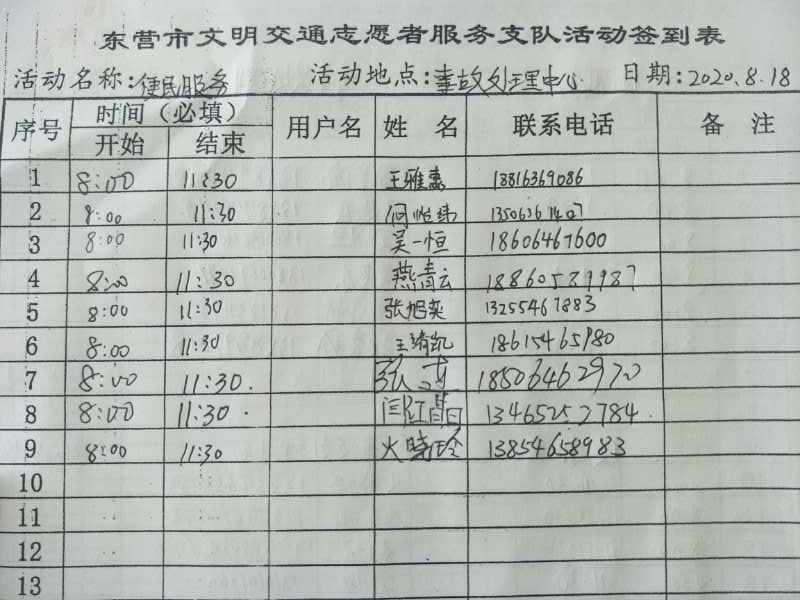 东营市文明交通志愿者服务支队活动签到表
活动名称:便民服务 活动地点:事故处理中心 日期:2020.8.18
序号 时间(必填) 用户名 姓 名 联系电话 备 注
开始 结束
1 8:00 11:30 王雅惠 18816369086
2 8:00 11:30 何怡纬
3 8:00 11:30 吴一恒 18606467600
4 8:00 11:30 燕青云 18860539987
5 8:00 11:30 张旭奕 13255467883
6 8:00 11:30 王靖凯 18615465980
7 8:00 11:30. 18506462970
8 8:00 11:30. 闫红晶 13465252784.
9 8:00 11:30 火晓玲 13854658983
10
11
12
13